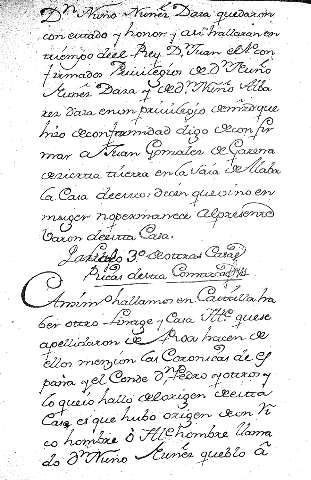 Dⁿ Nuño Nuñez Daza quedaron
con estado y honor y asi hallaran en
tiempo de el Rey Dⁿ Juan el 1º con
firmados Privilegios de Dⁿ Nuño
Nuñez Daza y de Dⁿ Nuño Alba
rez daza en un privilegio de mi que
hizo de conformidad digo de confir
mar a Juan Gonzalez de
de cierta tierra en la
la Casa de esto: dicen que vino en
muger no permanece al presente
Baron de esta Casa.
3º de otras Casas
Ricas de esta
Assimismo hallamos en Castilla ha
ber otro Linage y Casa que se
apellidaron de Roa hacen de
ellos menzion las Coronicas de es
paña y el Conde Dⁿ Pedro y otros y
lo que io hallo del origen de esta
Casa es que hubo origen de un Ri
co hombre ô hombre llama
do Dⁿ Nuño Nuñez pueblo â